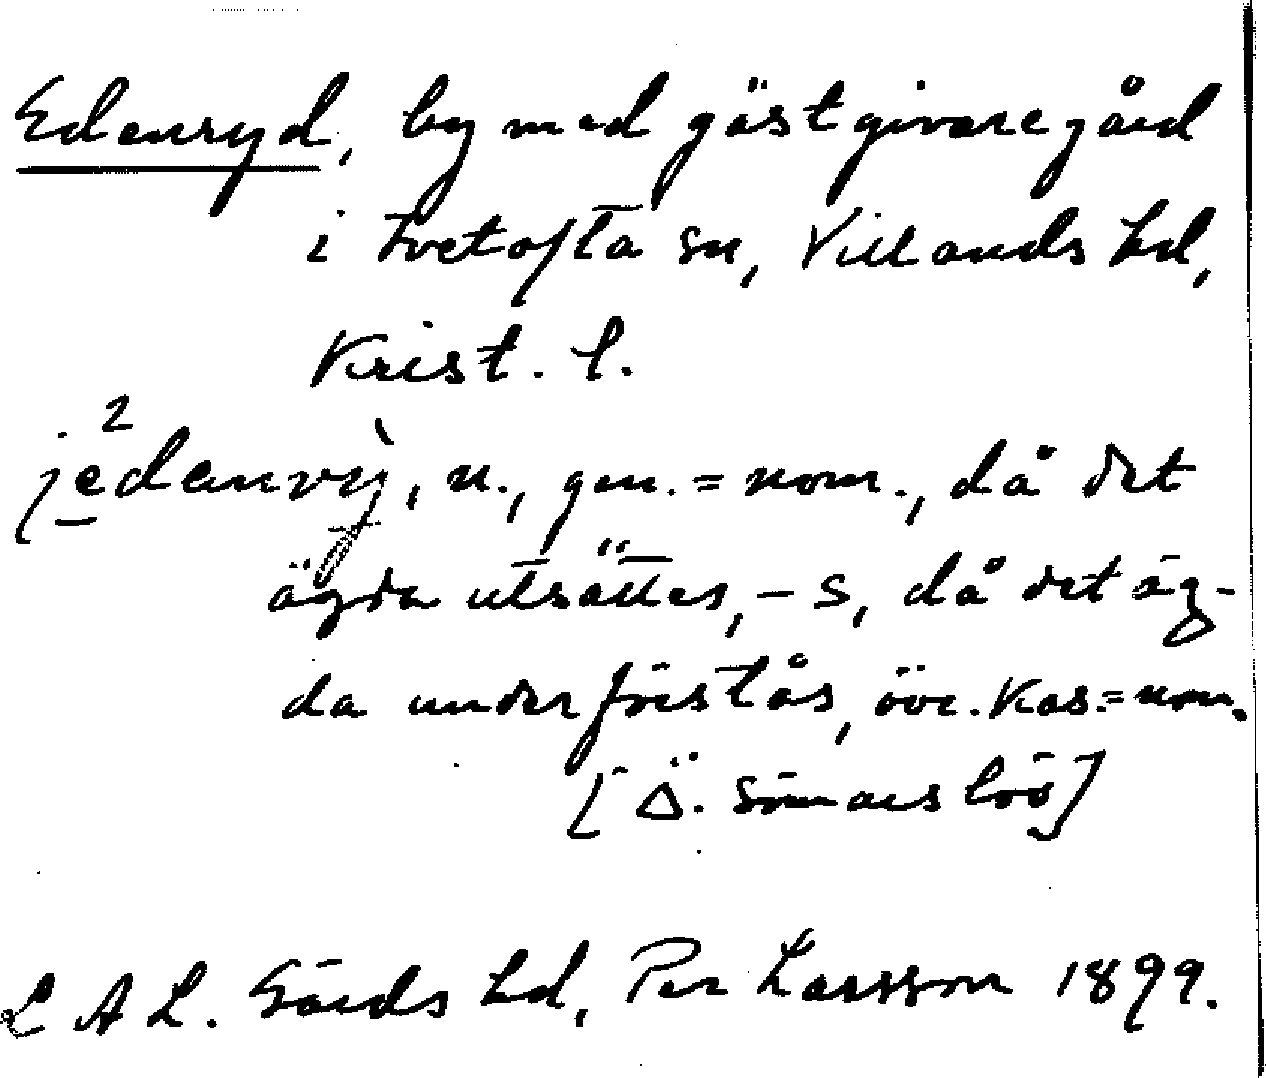 Edenryd, by med gästgivaregård
i Ivetofta sn, Villands hd,
Krist. l.
je²denrỳ, n., gen. = nom., då det
ägda utsättes, - s, då det äg-
da underförstås, övr. kas. = nom.
[Ö. Sönnarslöv]
L A L. Gärds hd, Per Larsson 1899.